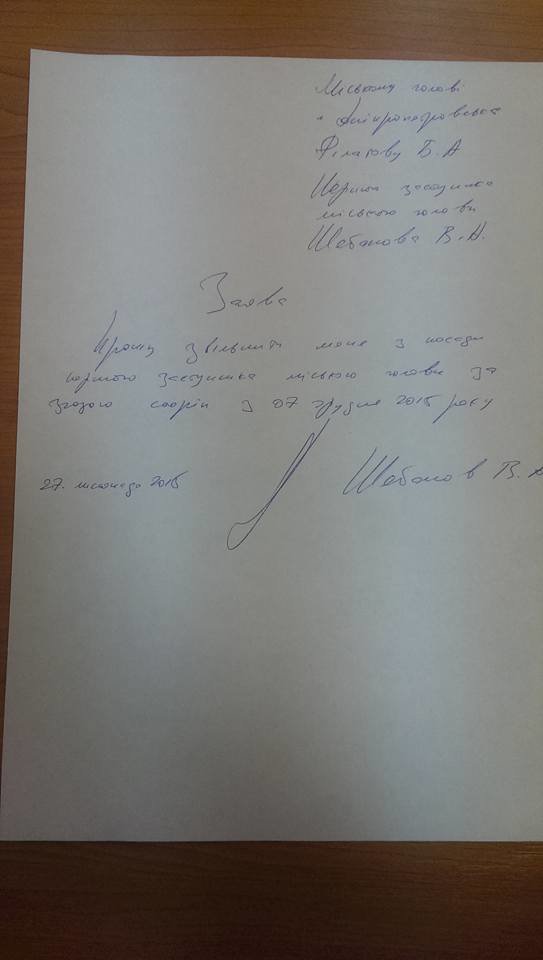 Міському голові
м Дніпропетровська
Філатову Б.А
Першого заступника
міського голови
Шебанова В.А.
Заява
Прошу звільнити мене з посади
першого заступника міського голови за
згодою сторін з 07 грудня 2015 року
27. листопада 2015
Шебанов В.А